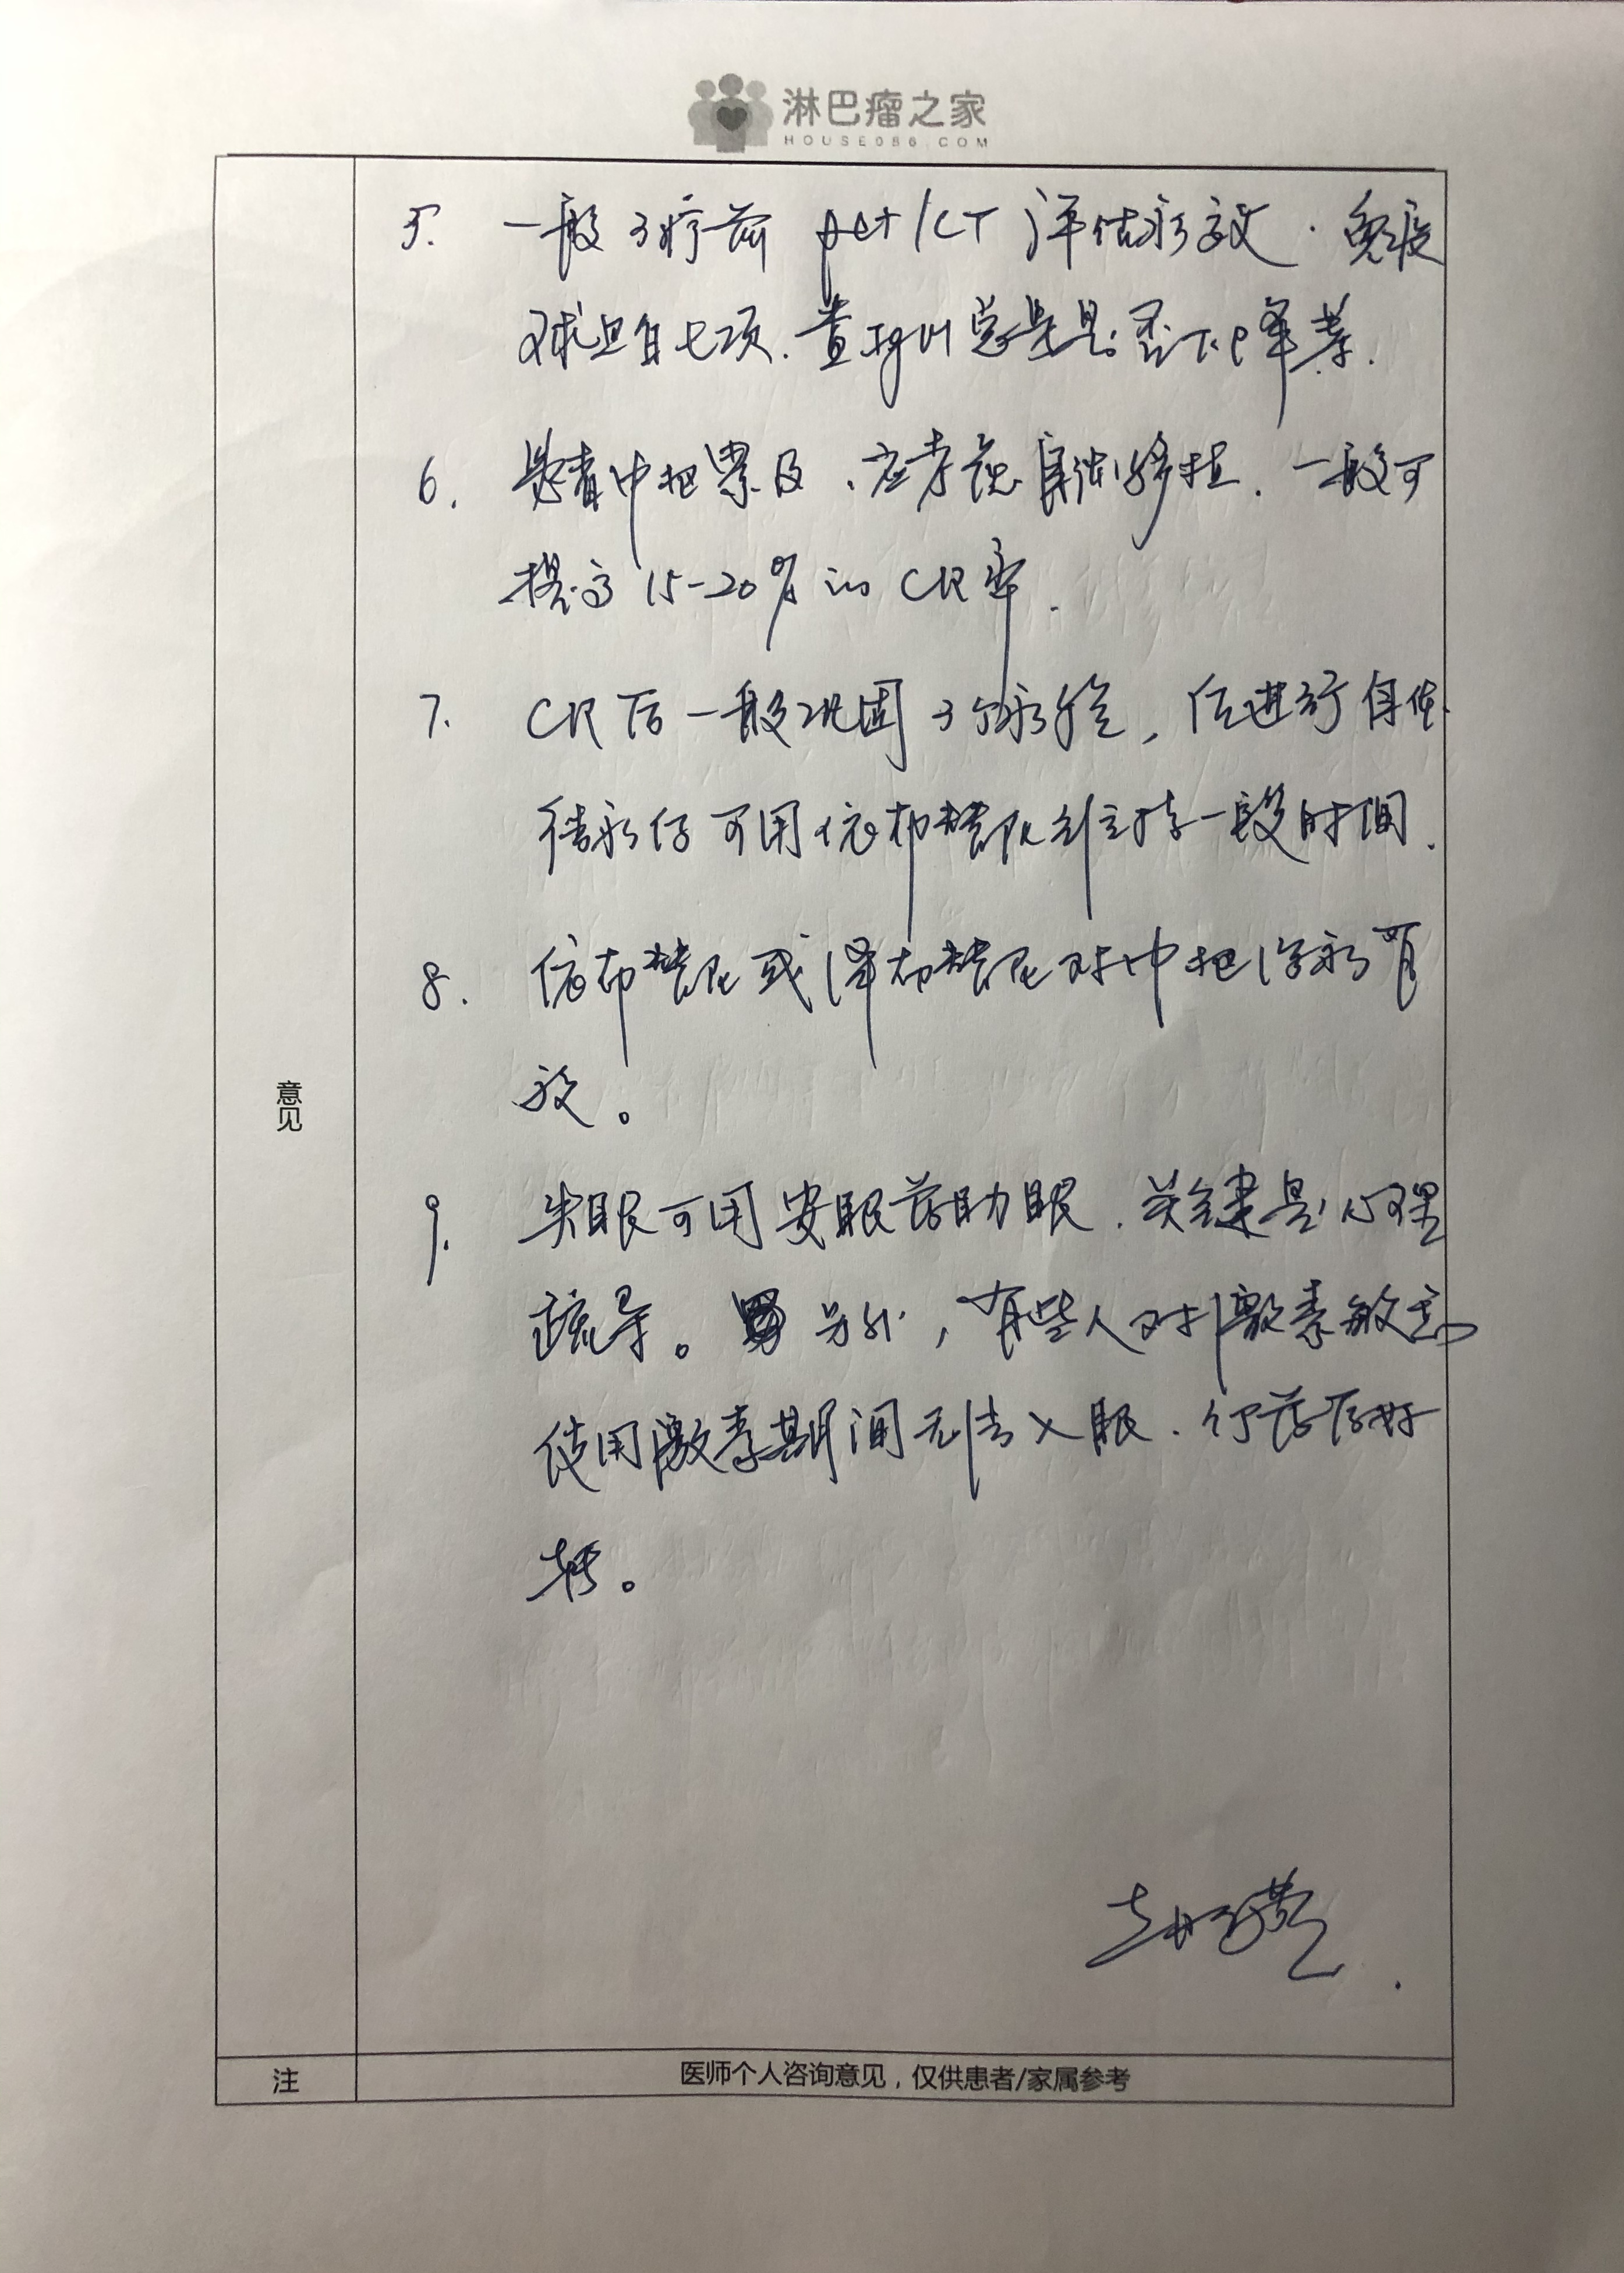 淋巴瘤之家
HOUSE086.COM
5. 一般3疗前 pet/CT 评估疗效. 免疫
球蛋白七项. 查IgM总量是否下降等.
6. 患者中枢累及、应考虑自体移植. 一般可
提高 15-20% 的 CR率.
7. CR后一般巩固3个疗程, 后进行自体
待疗后可用依布替尼维持一段时间.
8. 依布替尼或泽布替尼对中枢治疗有
效。
9. 失眠可用安眠药助眠. 关键是心理
疏导。 另外, 有些人对激素敏感
使用激素期间无法入眠. 停药后好
转。
意见
注
医师个人咨询意见，仅供患者/家属参考